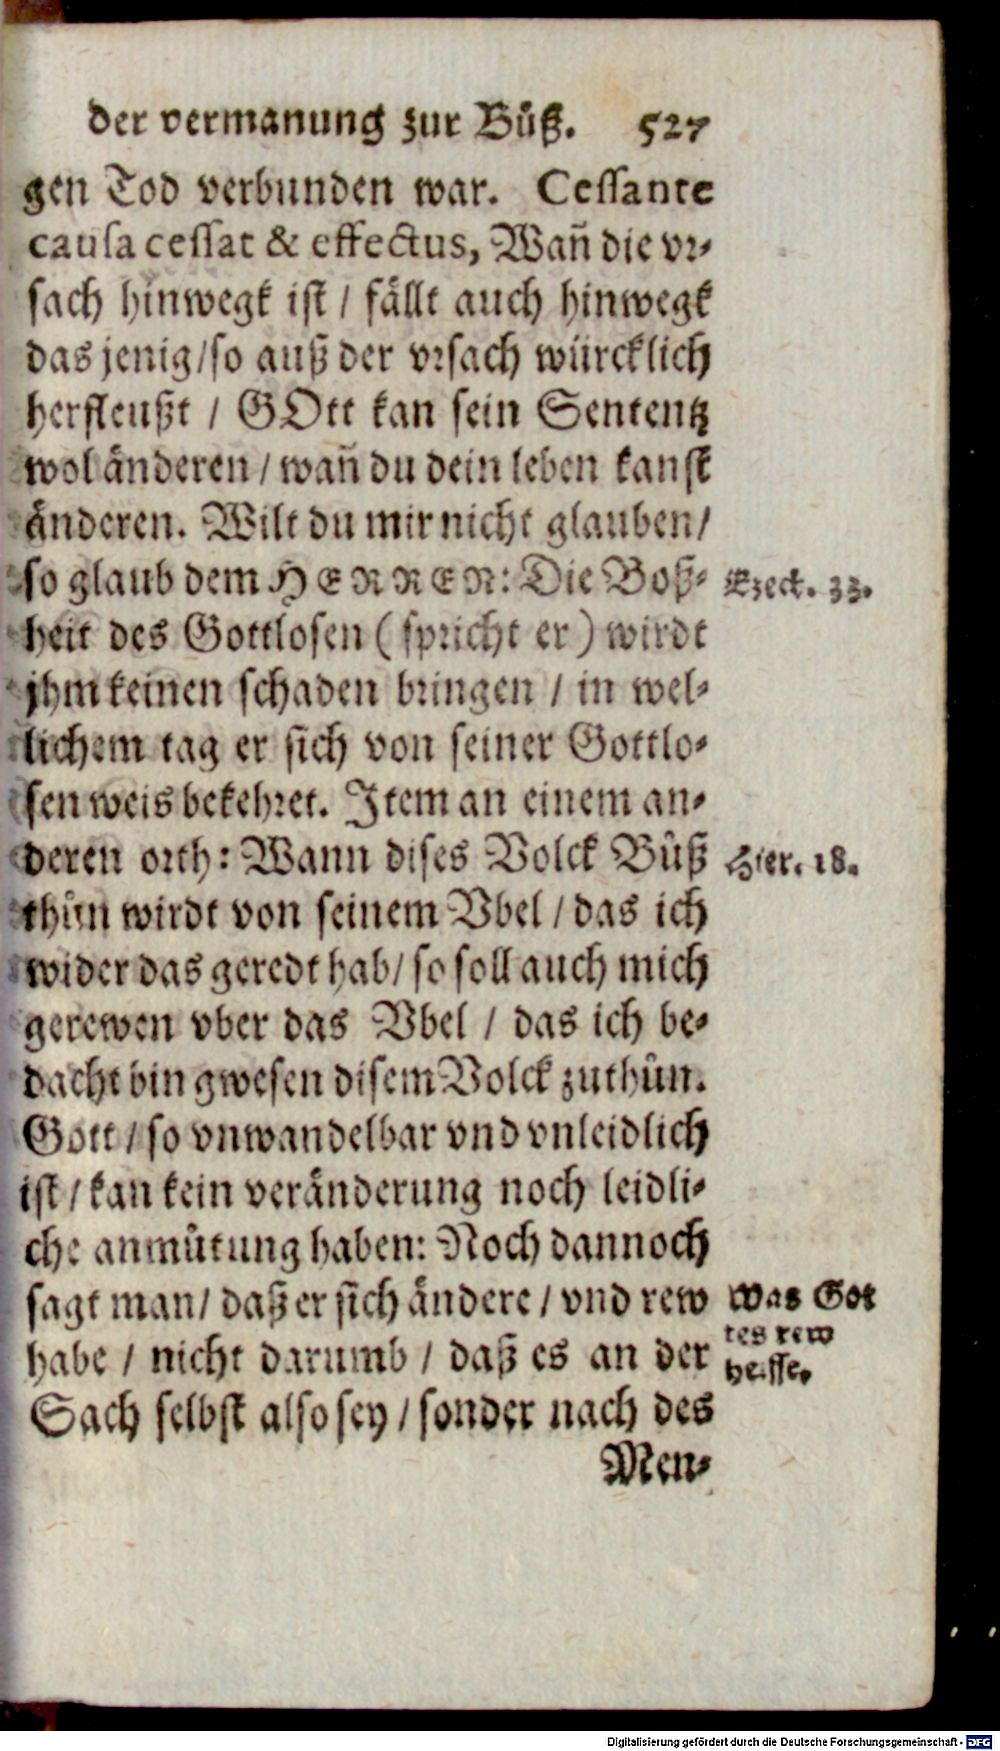 der vermanung zur Bůß. 527
gen Tod verbunden war. Cessante
causa cessat & effectus, Wañ die vr-
sach hinwegk ist / fällt auch hinwegk
das jenig / so auß der vrsach würcklich
herfleußt / GOtt kan sein Sententz
wol änderen / wañ du dein leben kanst
änderen. Wilt du mir nicht glauben /
so glaub dem HERREN: Die Boß-
Ezect. 33.
heit des Gottlosen ( spricht er ) wirdt
jhm keinen schaden bringen / in wel-
lichem tag er sich von seiner Gottlo-
sen weis bekehret. Item an einem an-
deren orth: Wann dises Volck Bůß
Hier. 18.
thůn wirdt von seinem Vbel / das ich
wider das geredt hab / so soll auch mich
gerewen vber das Vbel / das ich be-
dacht bin gwesen disem Volck zuthůn.
Gott / so vnwandelbar vnd vnleidlich
ist / kan kein veränderung noch leidli-
che anmůtung haben: Noch dannoch
sagt man / daß er sich ändere / vnd rew
habe / nicht darumb / daß es an der
Sach selbst also sey / sonder nach des
Was Got
tes rew
heisse.
Men-
Digitalisierung gefördert durch die Deutsche Forschungsgemeinschaft - DFG